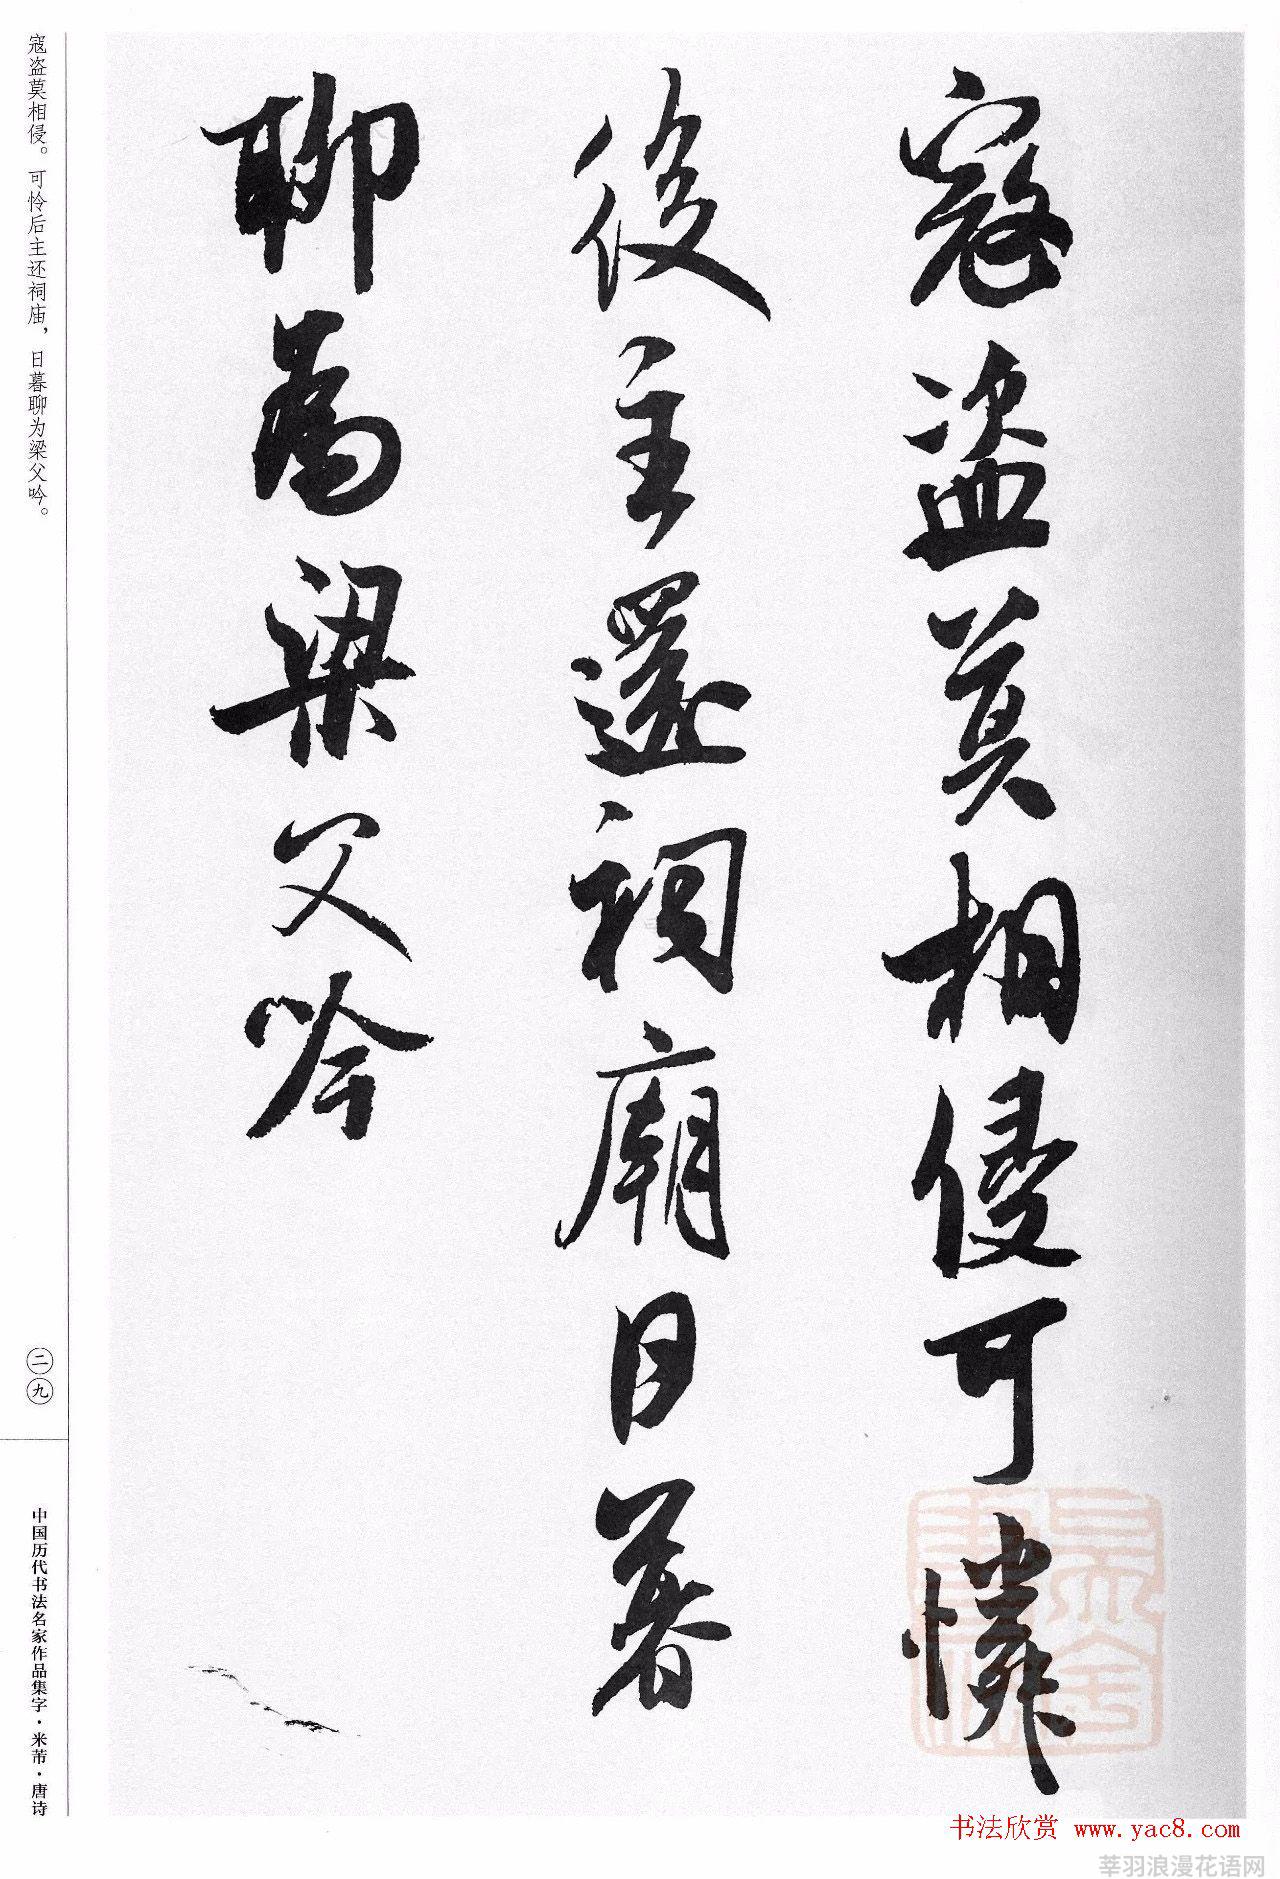 寇盗莫相侵可憐
後主還祠廟日暮
聊為梁父吟
寇盗莫相侵。可怜后主还祠庙，日暮聊为梁父吟。
二九
中国历代书法名家作品集字·米芾·唐诗
书法欣赏 www.yac8.com
莘羽浪漫花语网